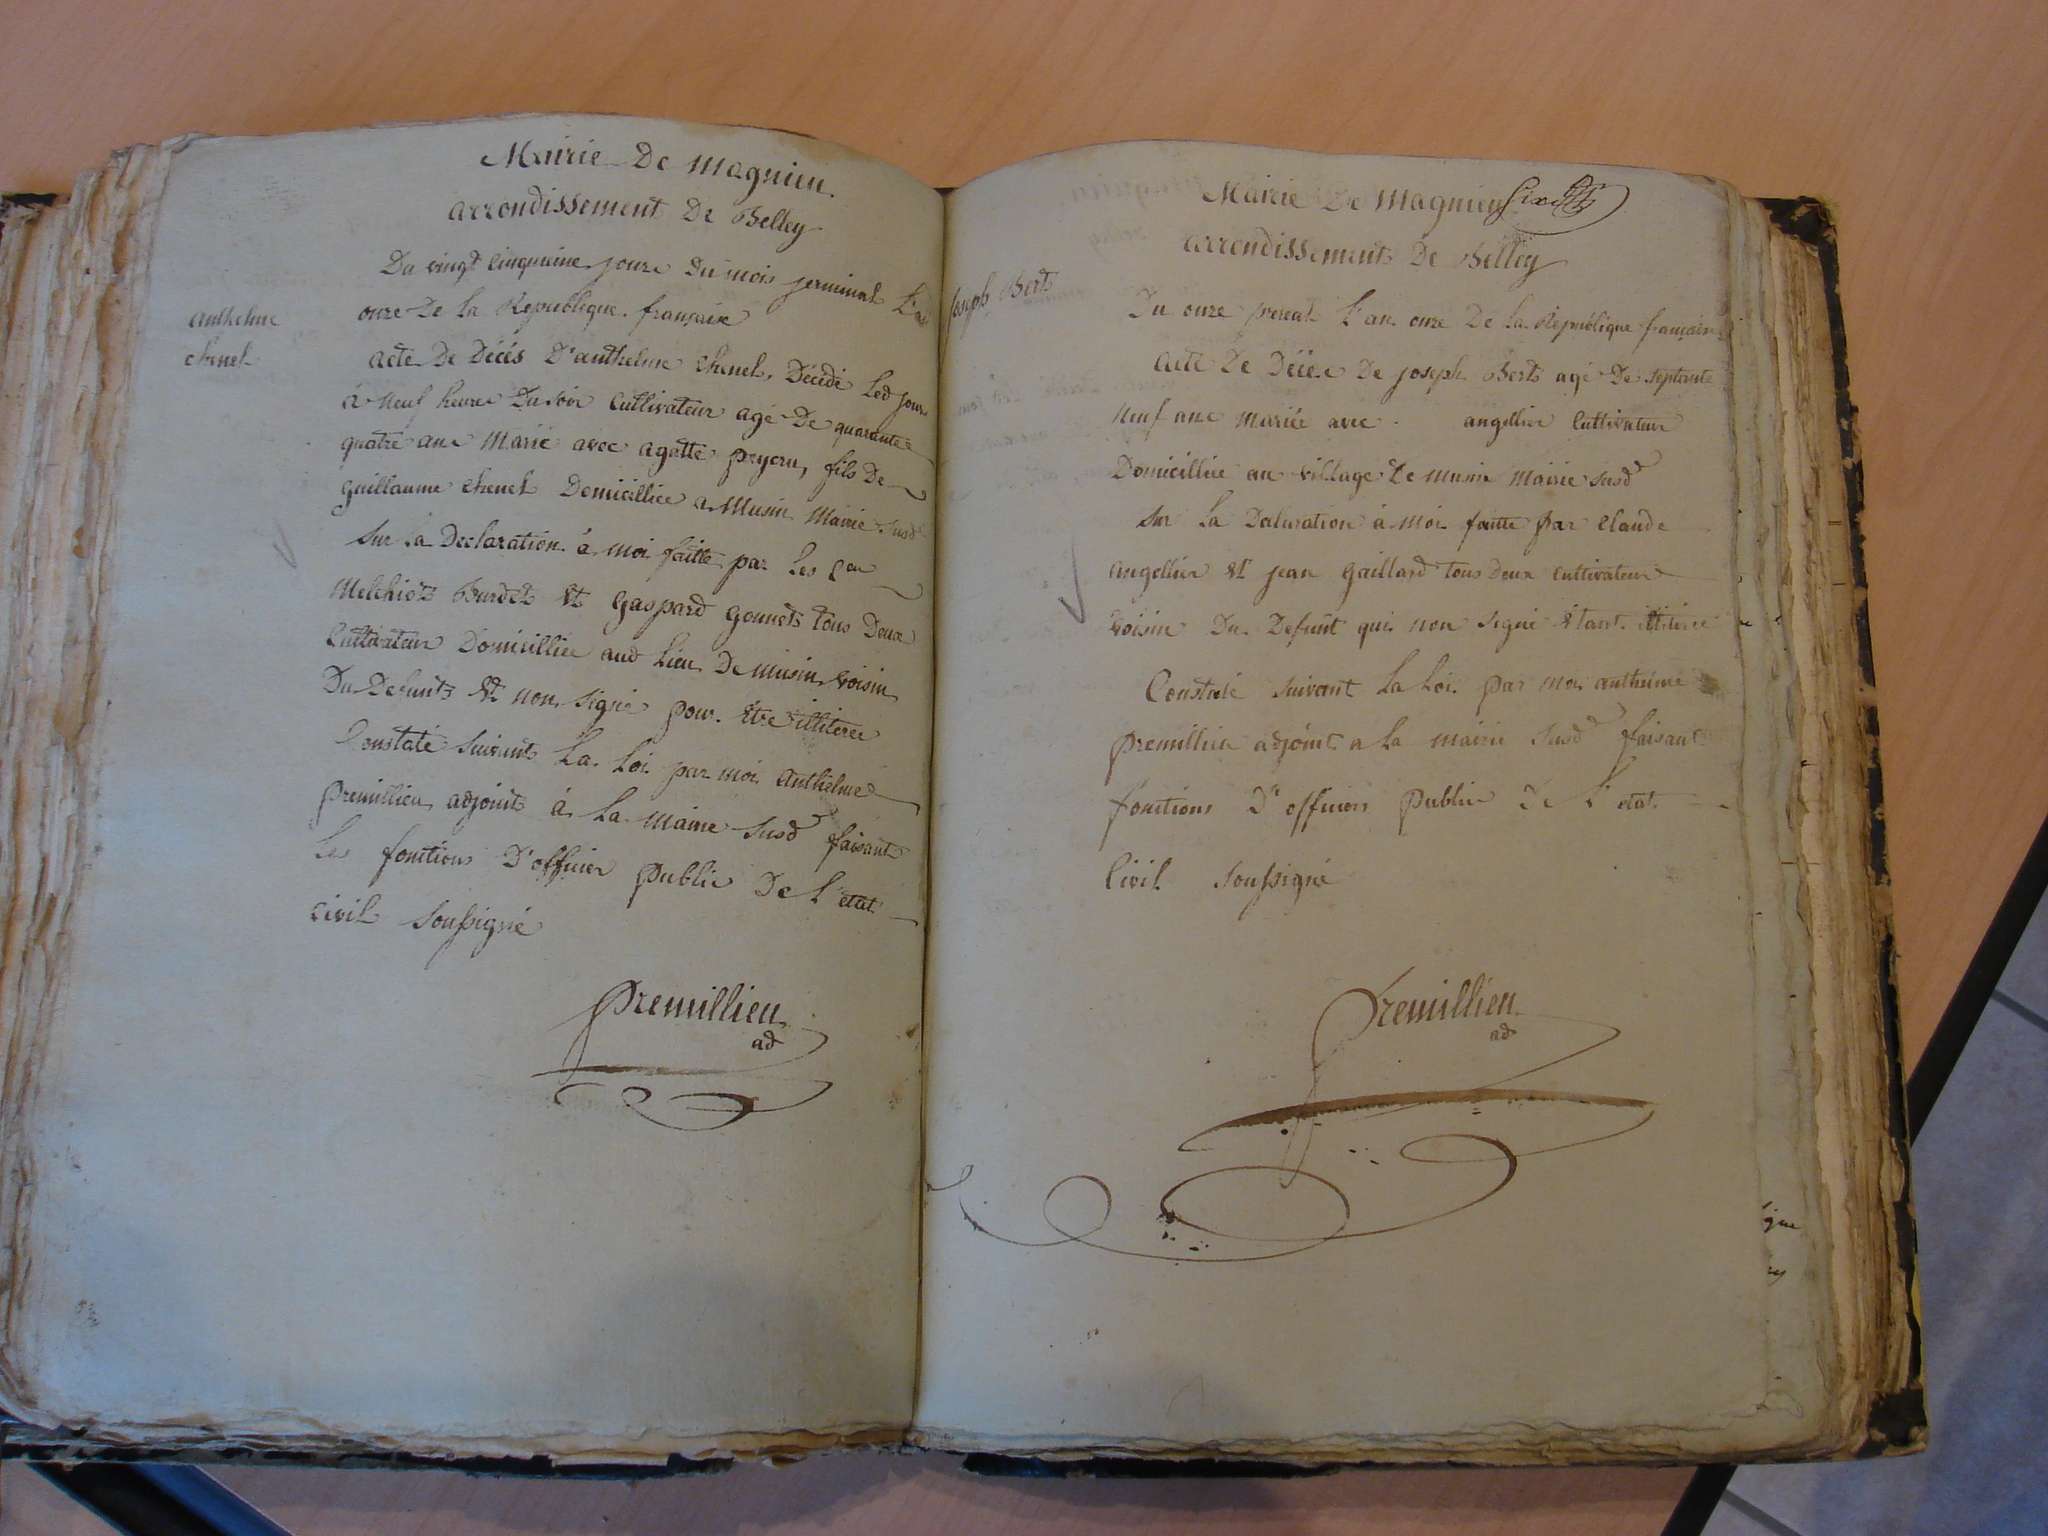 Mairie De Magnieu
arrondissement De Belley
Du vingt cinquieme jour Du mois germinal L'an
onze De La Republique française
anthelme
chenel
acte De Décés D'anthelme chenel, Décédé Led jour
à Neuf heure Du soir cultivateur agé De quarante
quatre ans Marié avec agatte peycru, fils De
guillaume chenel Domicilliée a Musin Mairie susd
Sur La Declaration à moi faitte par Les
Melchiots Burdet et gaspard gonnets tous Deux
Cultivateur Domicilliée aud Lieu De musin, voisin
Du Defunts et non signé pour être illiteré
Constaté suivants La Loi par moi anthelme
premillieu adjoints à La Mairie susd faisants
Les fonctions D'officier public De L'etat
civil soussigné
premillieu
ad
Mairie De Magnieu
arrondissements De Belley
Joseph Bert
Du onze L'an onze De La Republique française
acte De Décé De joseph Bert agé De septante
Neuf ans mariée avec angellier Cultivateur
Domicilliée au village De musin Mairie susd
Sur La Daluration à moi faitte par claude
angellier et jean gaillard tous Deux cultivateur
voisin Du Defunt qui non signé étant illiteré
Constaté suivant La Loi par moi anthelme
premillieu adjoint a La mairie susd faisant
fonctions D'officiers public De L'etat
Civil soussigné
premillieu
ad